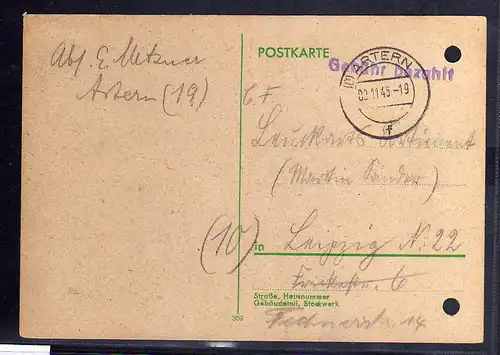 Abs. E. Metzner
Artern (19)
POSTKARTE
Gebühr bezahlt
ARTERN
02.11.45.-19
f
C. F.
Leuckarts Sortiment
(Martin Sander)
(10)
in Leipzig N. 22
Frickestr. 6
Straße, Hausnummer
Gebäudeteil, Stockwerk
Fechnerstr. 14
359